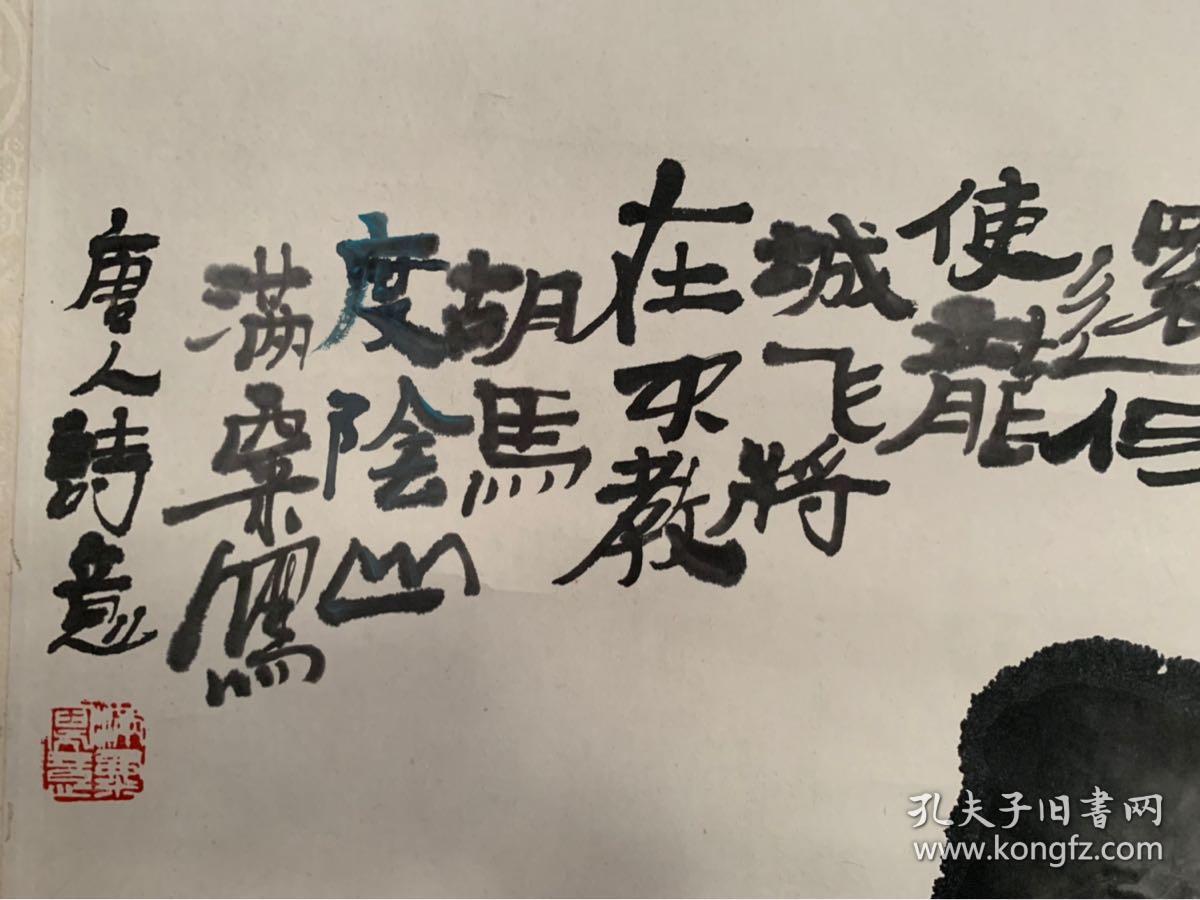 還但
使龍
城飞将
在不教
胡馬
度陰山
满
唐人詩意
孔夫子旧書网
www.kongfz.com